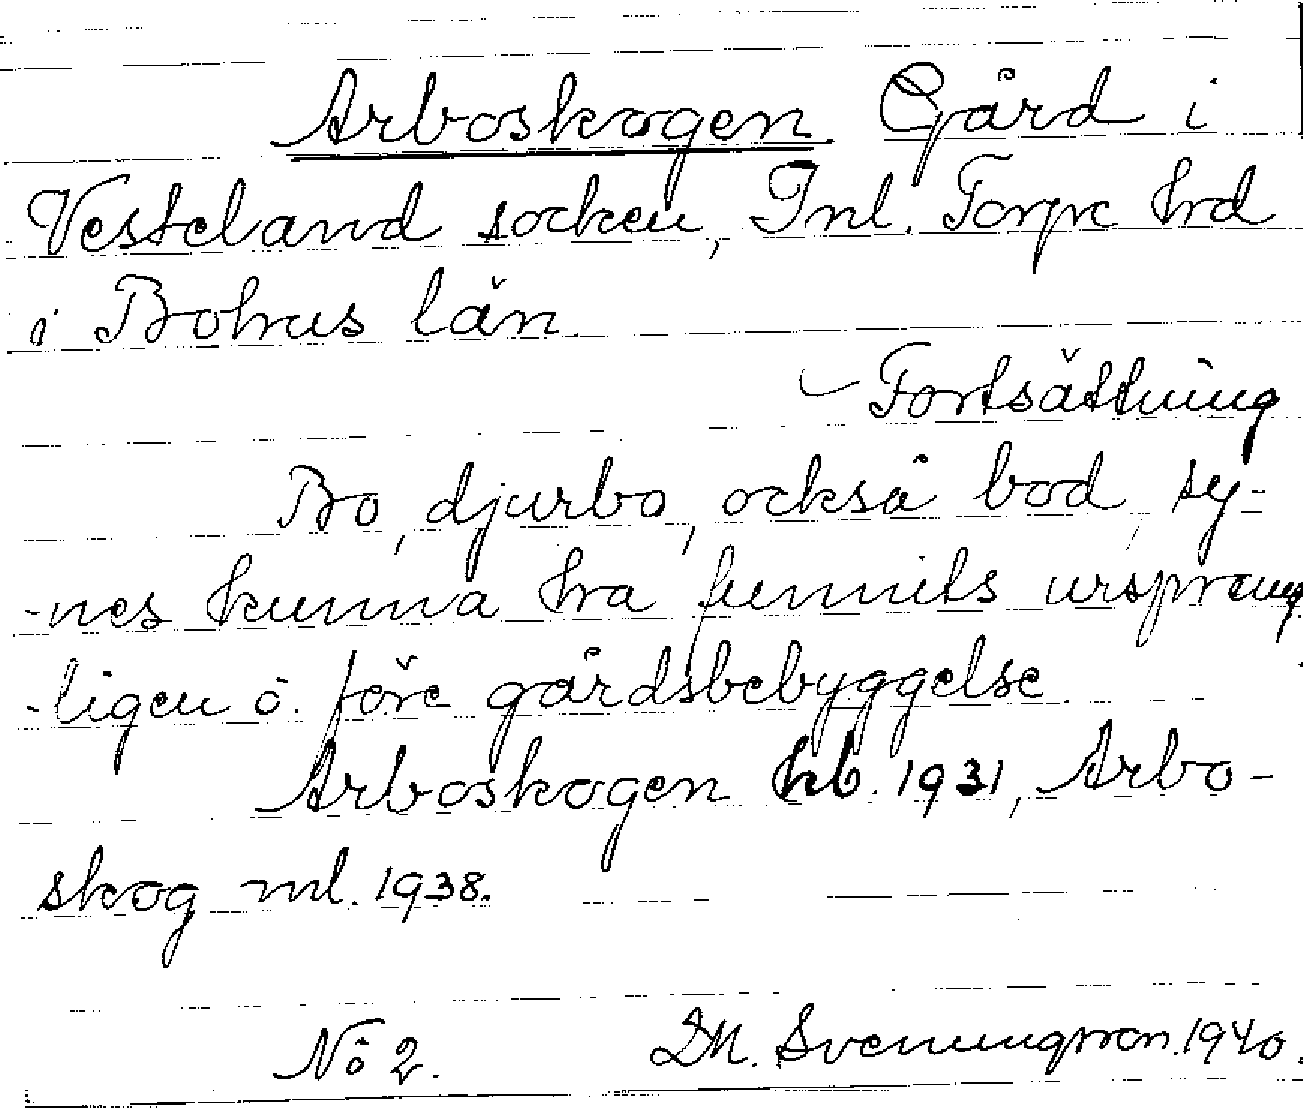 Arboskogen Gård i
Vesteland socken, Inl. Torpe hrd
i Bohus län.
Fortsättning
Bo, djurbo, också bod, sy-
-nes kunna ha funnits ursprung
-ligen o. före gårdsbebyggelse.
Arboskogen hb. 1931, Arbo-
skog ml. 1938.
No 2. D.M. Svenungsson. 1940.